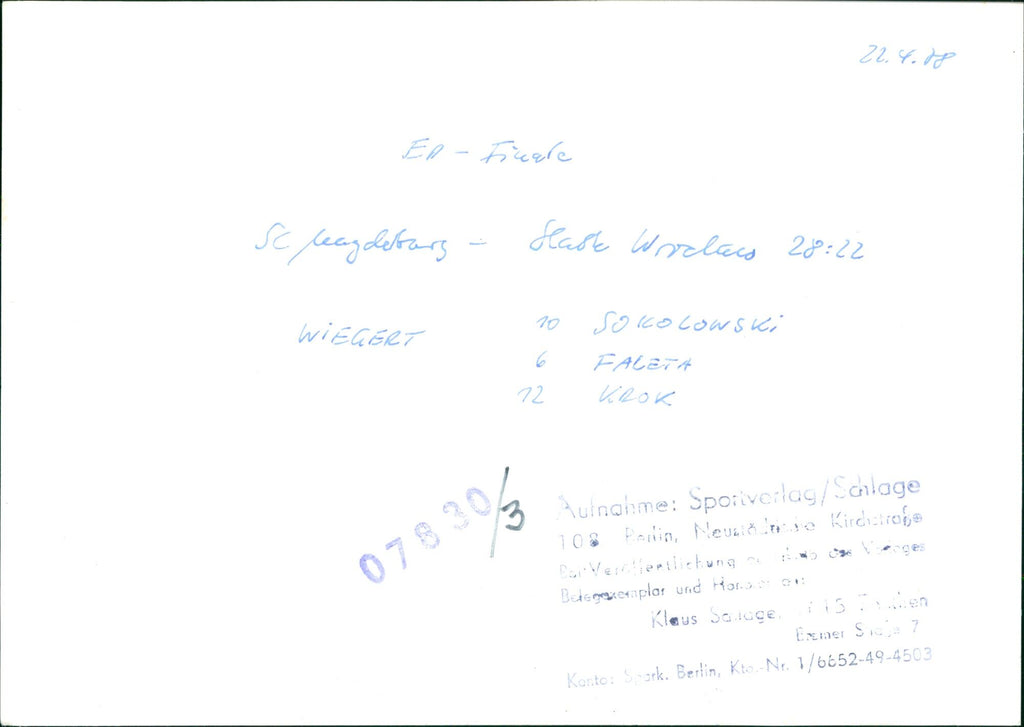 22.4.78
EP-Finale
SC Magdeburg - Slask Wroclaw 28:22
WIEGERT 10 SOKOLOWSKi
6 FALETA
12 KROK
07830/3
Aufnahme: Sportverlag/Schlage
108 Berlin, Neustädtische Kirchstraße
Bei Veröffentlichung des Verlages
Belegexemplar und Honorar an:
Klaus Schlage,
Bremer Straße 7
Konto: Spark. Berlin, Kto.-Nr. 1/6652-49-4503